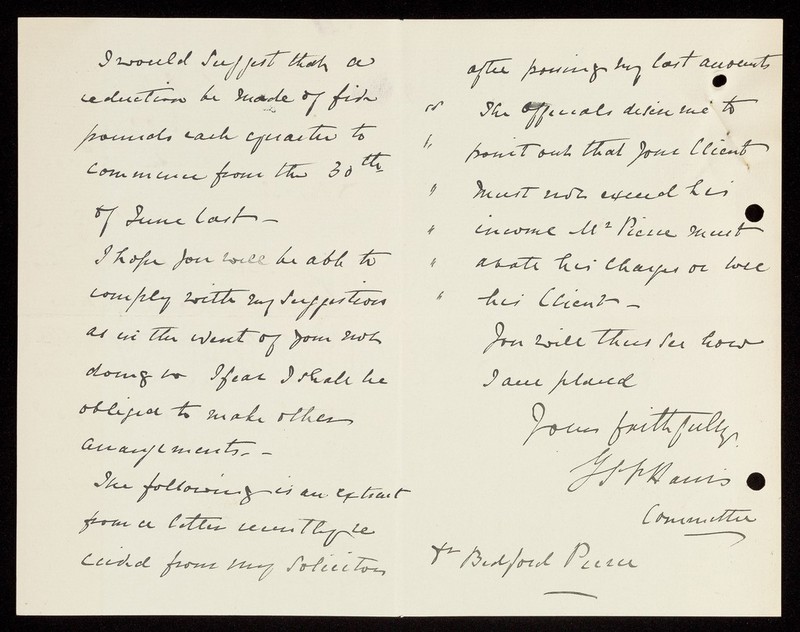 I would suggest that a
reduction be made of five
pounds each quarter to
commence from the 30th
of June last –
I hope you will be able to
comply with my suggestion
as in the event of your not
doing so I fear I shall be
obliged to make other
arrangements. –
The following is an extract
from a letter recently re
ceived from my Solicitors
after passing my last accounts
" The Officials desire me to
" point out that your Client
" must not exceed his
" income Mr Pierce must
" abate his charges or lose
" his Client –
You will thus see how
I am placed
Yours faithfully
Harris
Committee
Dr Bedford Pierce